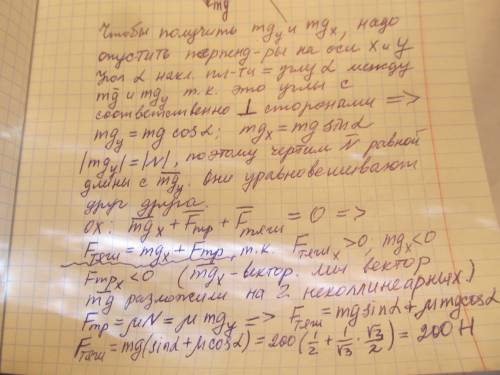 mg
Чтобы получить mgy и mgx, надо
опустить перпенд-ры на оси x и y
Угол α накл. пл-ти = углу α между
m̄g и mgy т.к. это углы с
соответственно ⊥ сторонами =>
mgy = mg cosα; mgx = mg sinα
|mgy| = |N|, поэтому чертим N равной
длины с m̄gy. они уравновешивают
друг друга.
ox: m̄gx + F̄тр + F̄тяги = 0 =>
Fтяги = mgx + Fтр, т.к. Fтягиx > 0, mgx < 0
Fтрx < 0 (m̄gx - вектор. мы вектор
m̄g разложили на 2 неколлинеарных)
Fтр = μN = μ mgy => Fтяги = mg sinα + μmg cosα
Fтяги = mg(sinα + μcosα) = 200(1/2 + 1/√3 · √3/2) = 200 Н